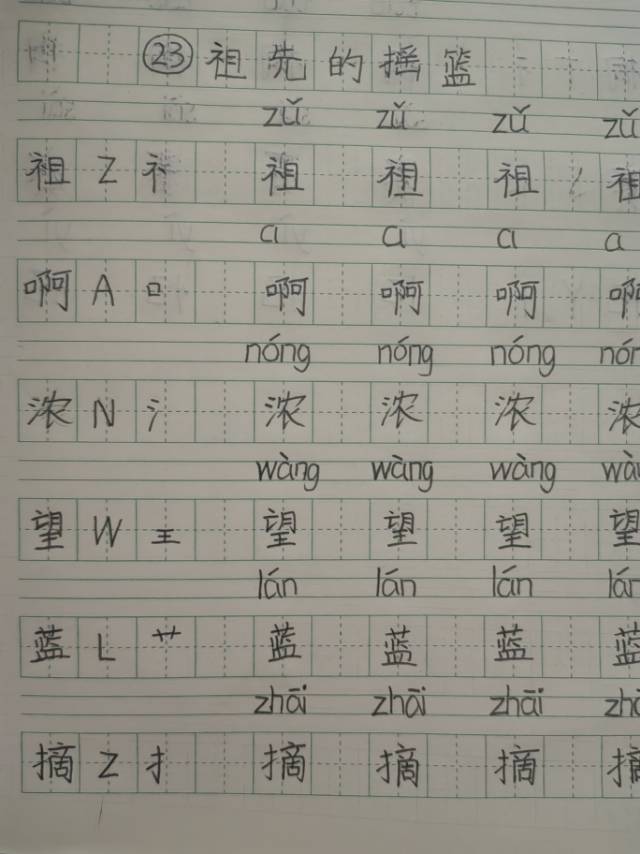 ㉓ 祖先的摇篮
zǔ zǔ zǔ zǔ
祖 Z 礻 祖 祖 祖 祖
a a a a
啊 A 口 啊 啊 啊 啊
nóng nóng nóng nón
浓 N 氵 浓 浓 浓 浓
wàng wàng wàng wàn
望 W 王 望 望 望 望
lán lán lán lán
蓝 L 艹 蓝 蓝 蓝 蓝
zhāi zhāi zhāi zhā
摘 Z 扌 摘 摘 摘 摘